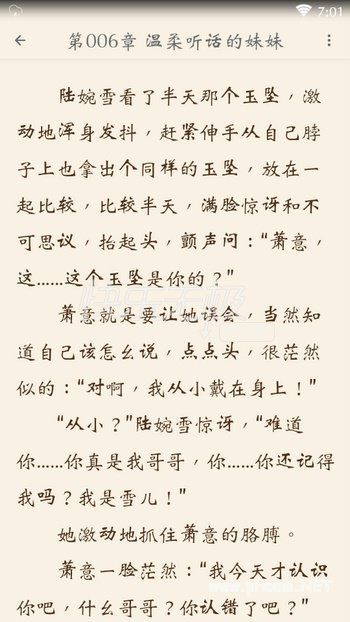 7:01
第006章 温柔听话的妹妹
陆婉雪看了半天那个玉坠，激
动地浑身发抖，赶紧伸手从自己脖
子上也拿出个同样的玉坠，放在一
起比较，比较半天，满脸惊讶和不
可思议，抬起头，颤声问：“萧意，
这……这个玉坠是你的？”
萧意就是要让她误会，当然知
道自己该怎么说，点点头，很茫然
似的：“对啊，我从小戴在身上！”
“从小？”陆婉雪惊讶，“难道
你……你真是我哥哥，你……你还记得
我吗？我是雪儿！”
她激动地抓住萧意的胳膊。
萧意一脸茫然：“我今天才认识
你吧，什么哥哥？你认错了吧？”